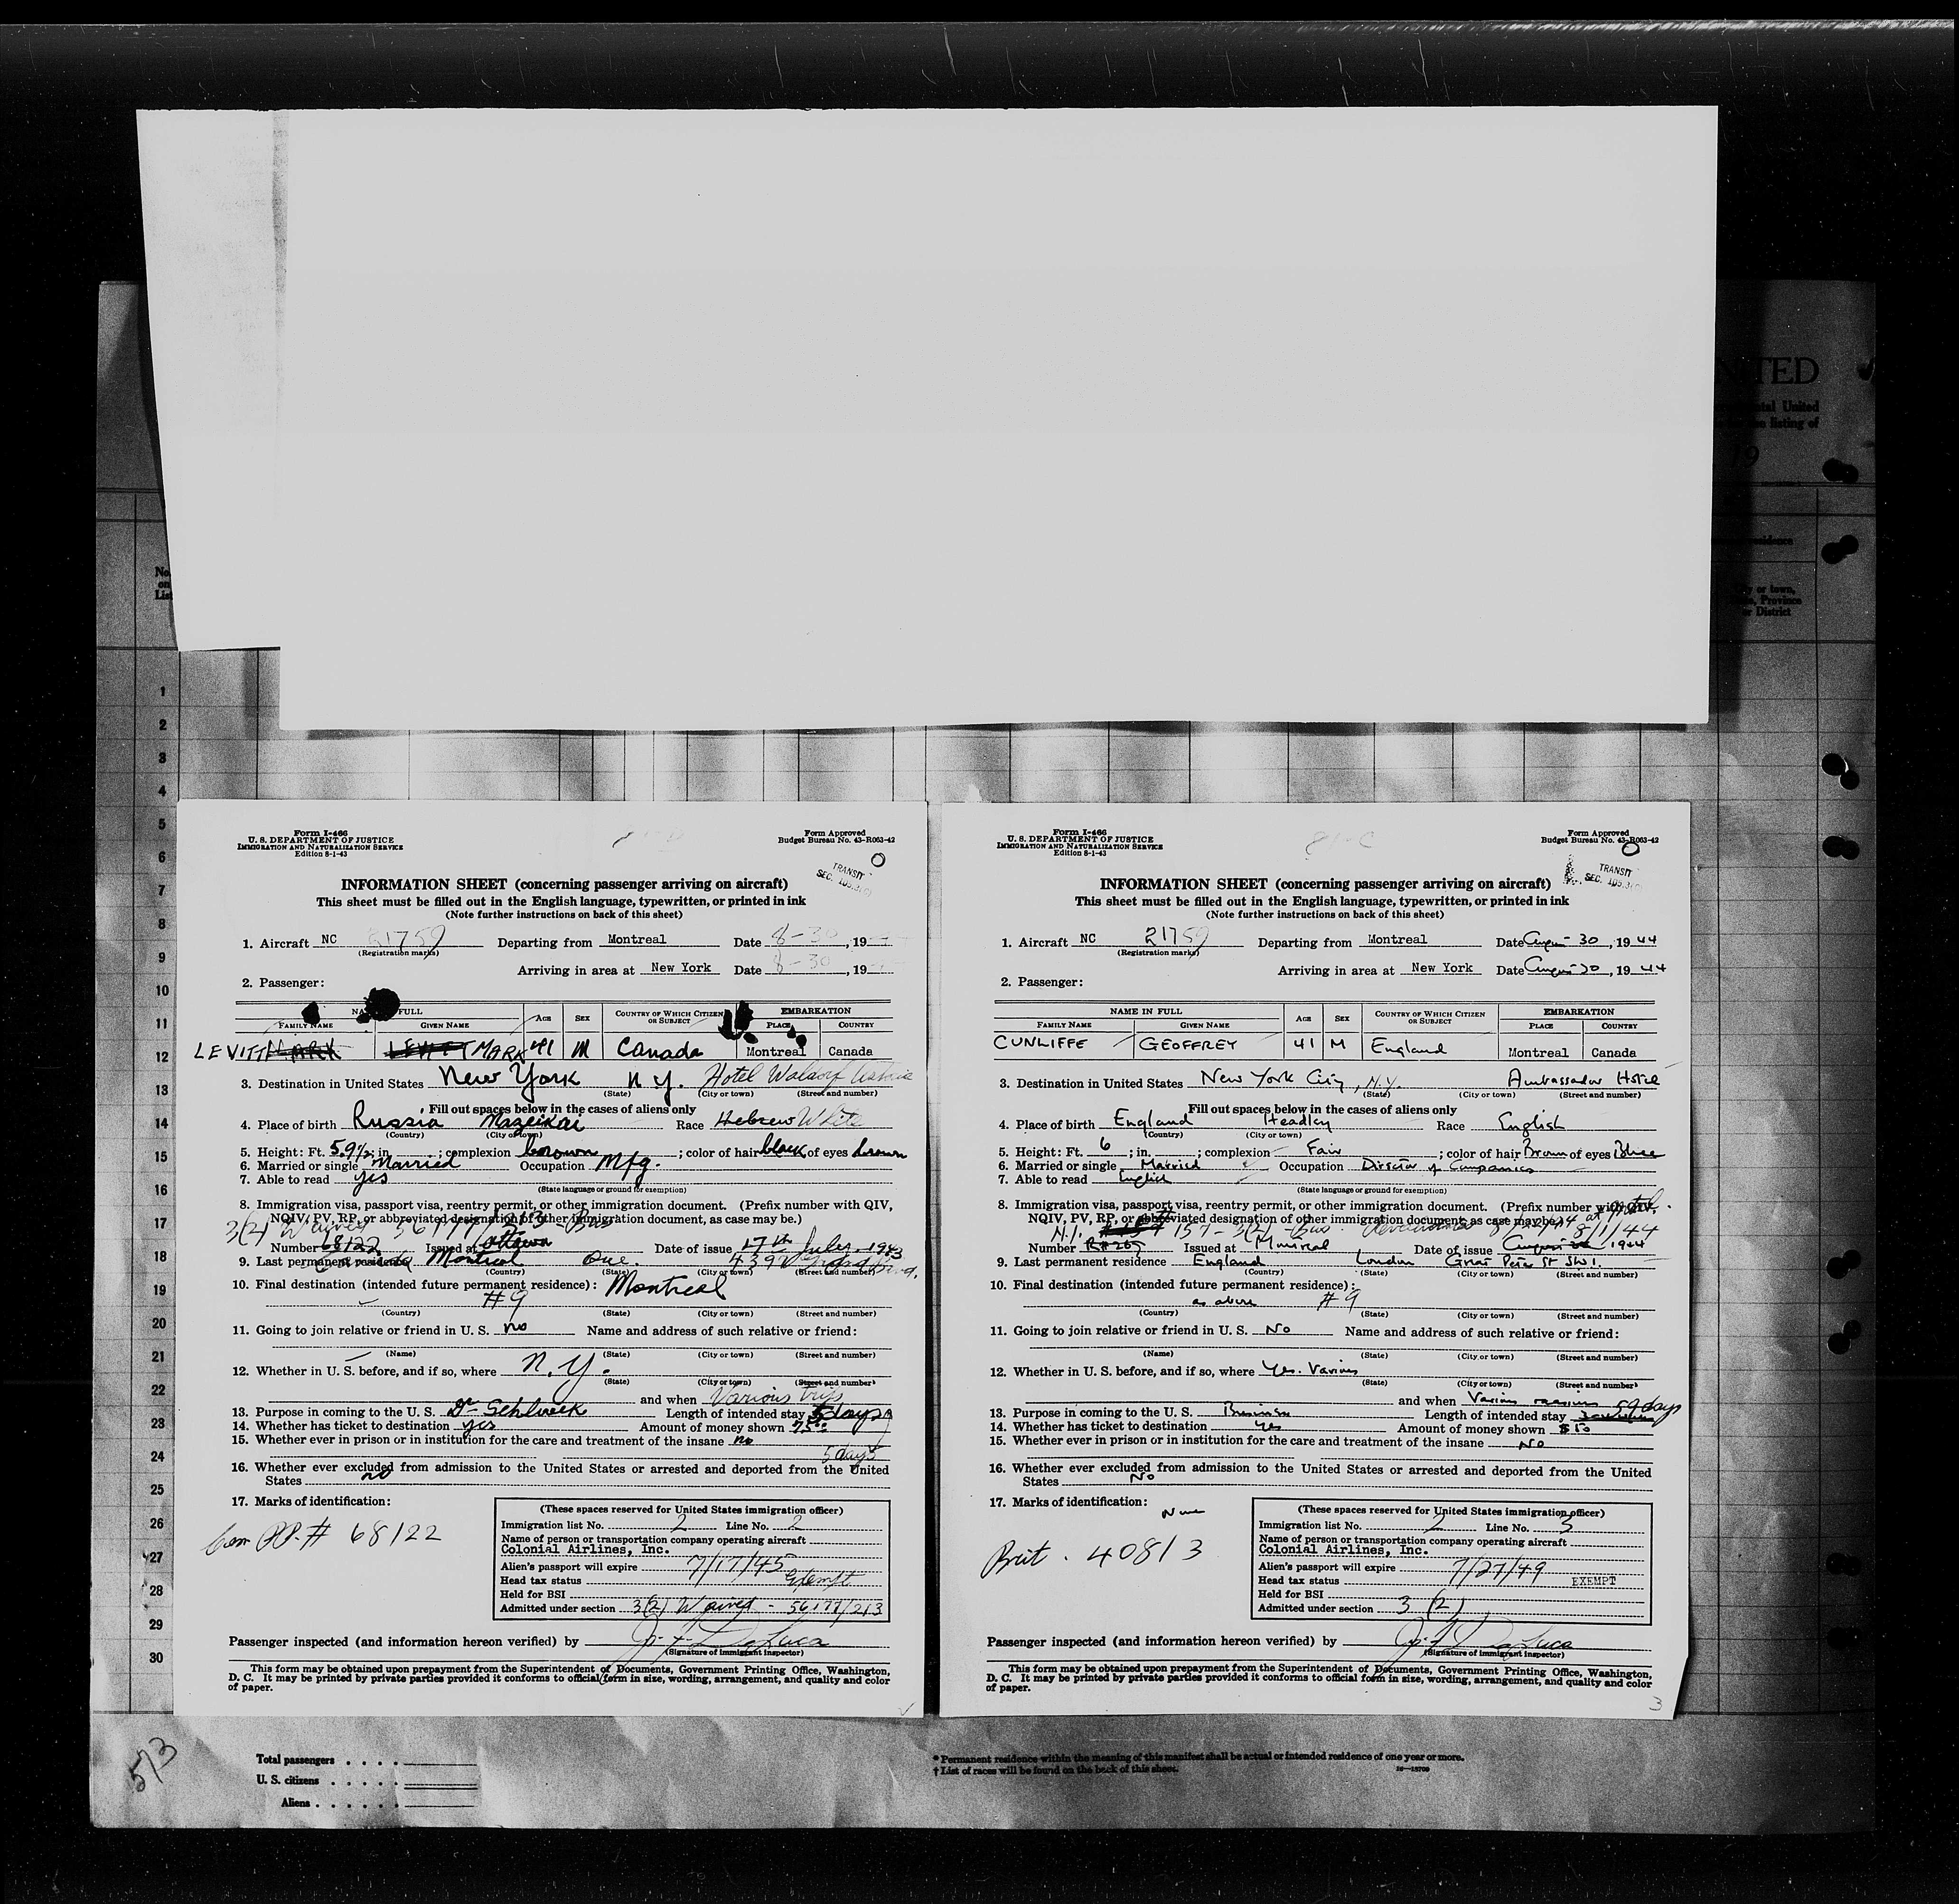 NITED
ntal United
listing of
19
No.
on
List
or town,
Province
or District
1
2
3
4
5
6
7
8
9
10
11
12
13
14
15
16
17
18
19
20
21
22
23
24
25
26
27
28
29
30
Form I-466
U. S. DEPARTMENT OF JUSTICE
IMMIGRATION AND NATURALIZATION SERVICE
Edition 8-1-43
Form Approved
Budget Bureau No. 43-R063-42
TRANSIT
INFORMATION SHEET (concerning passenger arriving on aircraft)
This sheet must be filled out in the English language, typewritten, or printed in ink
(Note further instructions on back of this sheet)
1. Aircraft NC 21759 Departing from Montreal Date 8-30, 19
(Registration marks)
Arriving in area at New York Date 8-30, 19
2. Passenger:
NAME IN FULL AGE SEX COUNTRY OF WHICH CITIZEN OR SUBJECT EMBARKATION
FAMILY NAME GIVEN NAME PLACE COUNTRY
LEVITT MARK 41 M Canada Montreal Canada
3. Destination in United States New York N.Y. Hotel Waldorf Astoria
(State) (City or town) (Street and number)
Fill out spaces below in the cases of aliens only
4. Place of birth Russia Mazeikai Race Hebrew White
(Country) (City or town)
5. Height: Ft. 5.9½; in.; complexion brown; color of hair black of eyes brown
6. Married or single Married Occupation Mfg.
7. Able to read yes
(State language or ground for exemption)
8. Immigration visa, passport visa, reentry permit, or other immigration document. (Prefix number with QIV,
NQIV, PV, RP, or abbreviated designation of other immigration document, as case may be.)
Number 68122 Issued at Ottawa Date of issue 17th July 1943
9. Last permanent residence Canada Montreal Que. 4392
(Country) (State) (City or town) (Street and number)
10. Final destination (intended future permanent residence): Montreal
#9
(Country) (State) (City or town) (Street and number)
11. Going to join relative or friend in U. S. no Name and address of such relative or friend:
(Name) (State) (City or town) (Street and number)
12. Whether in U. S. before, and if so, where N.Y.
(State) (City or town) (Street and number)
and when Various trips
13. Purpose in coming to the U. S. Length of intended stay 5 days
14. Whether has ticket to destination yes Amount of money shown 75.00
15. Whether ever in prison or in institution for the care and treatment of the insane no
5 days
16. Whether ever excluded from admission to the United States or arrested and deported from the United
States no
17. Marks of identification:
Can PP. # 68122
(These spaces reserved for United States immigration officer)
Immigration list No. 2 Line No. 2
Name of person or transportation company operating aircraft
Colonial Airlines, Inc.
Alien's passport will expire 7/17/45
Head tax status Exempt
Held for BSI
Admitted under section 3(2) Waived - 56177/213
Passenger inspected (and information hereon verified) by J. F. DeLuca
(Signature of immigrant inspector)
This form may be obtained upon prepayment from the Superintendent of Documents, Government Printing Office, Washington,
D. C. It may be printed by private parties provided it conforms to official form in size, wording, arrangement, and quality and color
of paper.
Form I-466
U. S. DEPARTMENT OF JUSTICE
IMMIGRATION AND NATURALIZATION SERVICE
Edition 8-1-43
81-C
Form Approved
Budget Bureau No. 43-R063-42
TRANSIT
INFORMATION SHEET (concerning passenger arriving on aircraft)
This sheet must be filled out in the English language, typewritten, or printed in ink
(Note further instructions on back of this sheet)
1. Aircraft NC 21759 Departing from Montreal Date August 30, 1944
(Registration marks)
Arriving in area at New York Date August 30, 1944
2. Passenger:
NAME IN FULL AGE SEX COUNTRY OF WHICH CITIZEN OR SUBJECT EMBARKATION
FAMILY NAME GIVEN NAME PLACE COUNTRY
CUNLIFFE GEOFFREY 41 M England Montreal Canada
3. Destination in United States New York City, N.Y. Ambassador Hotel
(State) (City or town) (Street and number)
Fill out spaces below in the cases of aliens only
4. Place of birth England Headley Race English
(Country) (City or town)
5. Height: Ft. 6; in.; complexion Fair; color of hair Brown of eyes Blue
6. Married or single Married Occupation Director of Companies
7. Able to read English
(State language or ground for exemption)
8. Immigration visa, passport visa, reentry permit, or other immigration document. (Prefix number with QIV,
NQIV, PV, RP, or abbreviated designation of other immigration document, as case may be.)
Number Issued at Montreal Date of issue August 1944
9. Last permanent residence England London Great Peter St SW1.
(Country) (State) (City or town) (Street and number)
10. Final destination (intended future permanent residence):
as above #9
(Country) (State) (City or town) (Street and number)
11. Going to join relative or friend in U. S. No Name and address of such relative or friend:
(Name) (State) (City or town) (Street and number)
12. Whether in U. S. before, and if so, where Yes. Various
(State) (City or town) (Street and number)
and when Various
13. Purpose in coming to the U. S. Business Length of intended stay 59 days
14. Whether has ticket to destination Yes Amount of money shown $10
15. Whether ever in prison or in institution for the care and treatment of the insane No
16. Whether ever excluded from admission to the United States or arrested and deported from the United
States No
17. Marks of identification:
None
Brit. 40813
(These spaces reserved for United States immigration officer)
Immigration list No. 2 Line No. 3
Name of person or transportation company operating aircraft
Colonial Airlines, Inc.
Alien's passport will expire 7/27/49
Head tax status EXEMPT
Held for BSI
Admitted under section 3 (2)
Passenger inspected (and information hereon verified) by J. F. DeLuca
(Signature of immigrant inspector)
This form may be obtained upon prepayment from the Superintendent of Documents, Government Printing Office, Washington,
D. C. It may be printed by private parties provided it conforms to official form in size, wording, arrangement, and quality and color
of paper.
3
513
Total passengers
U. S. citizens
Aliens
* Permanent residence within the meaning of this manifest shall be actual or intended residence of one year or more.
† List of races will be found on the back of this sheet.